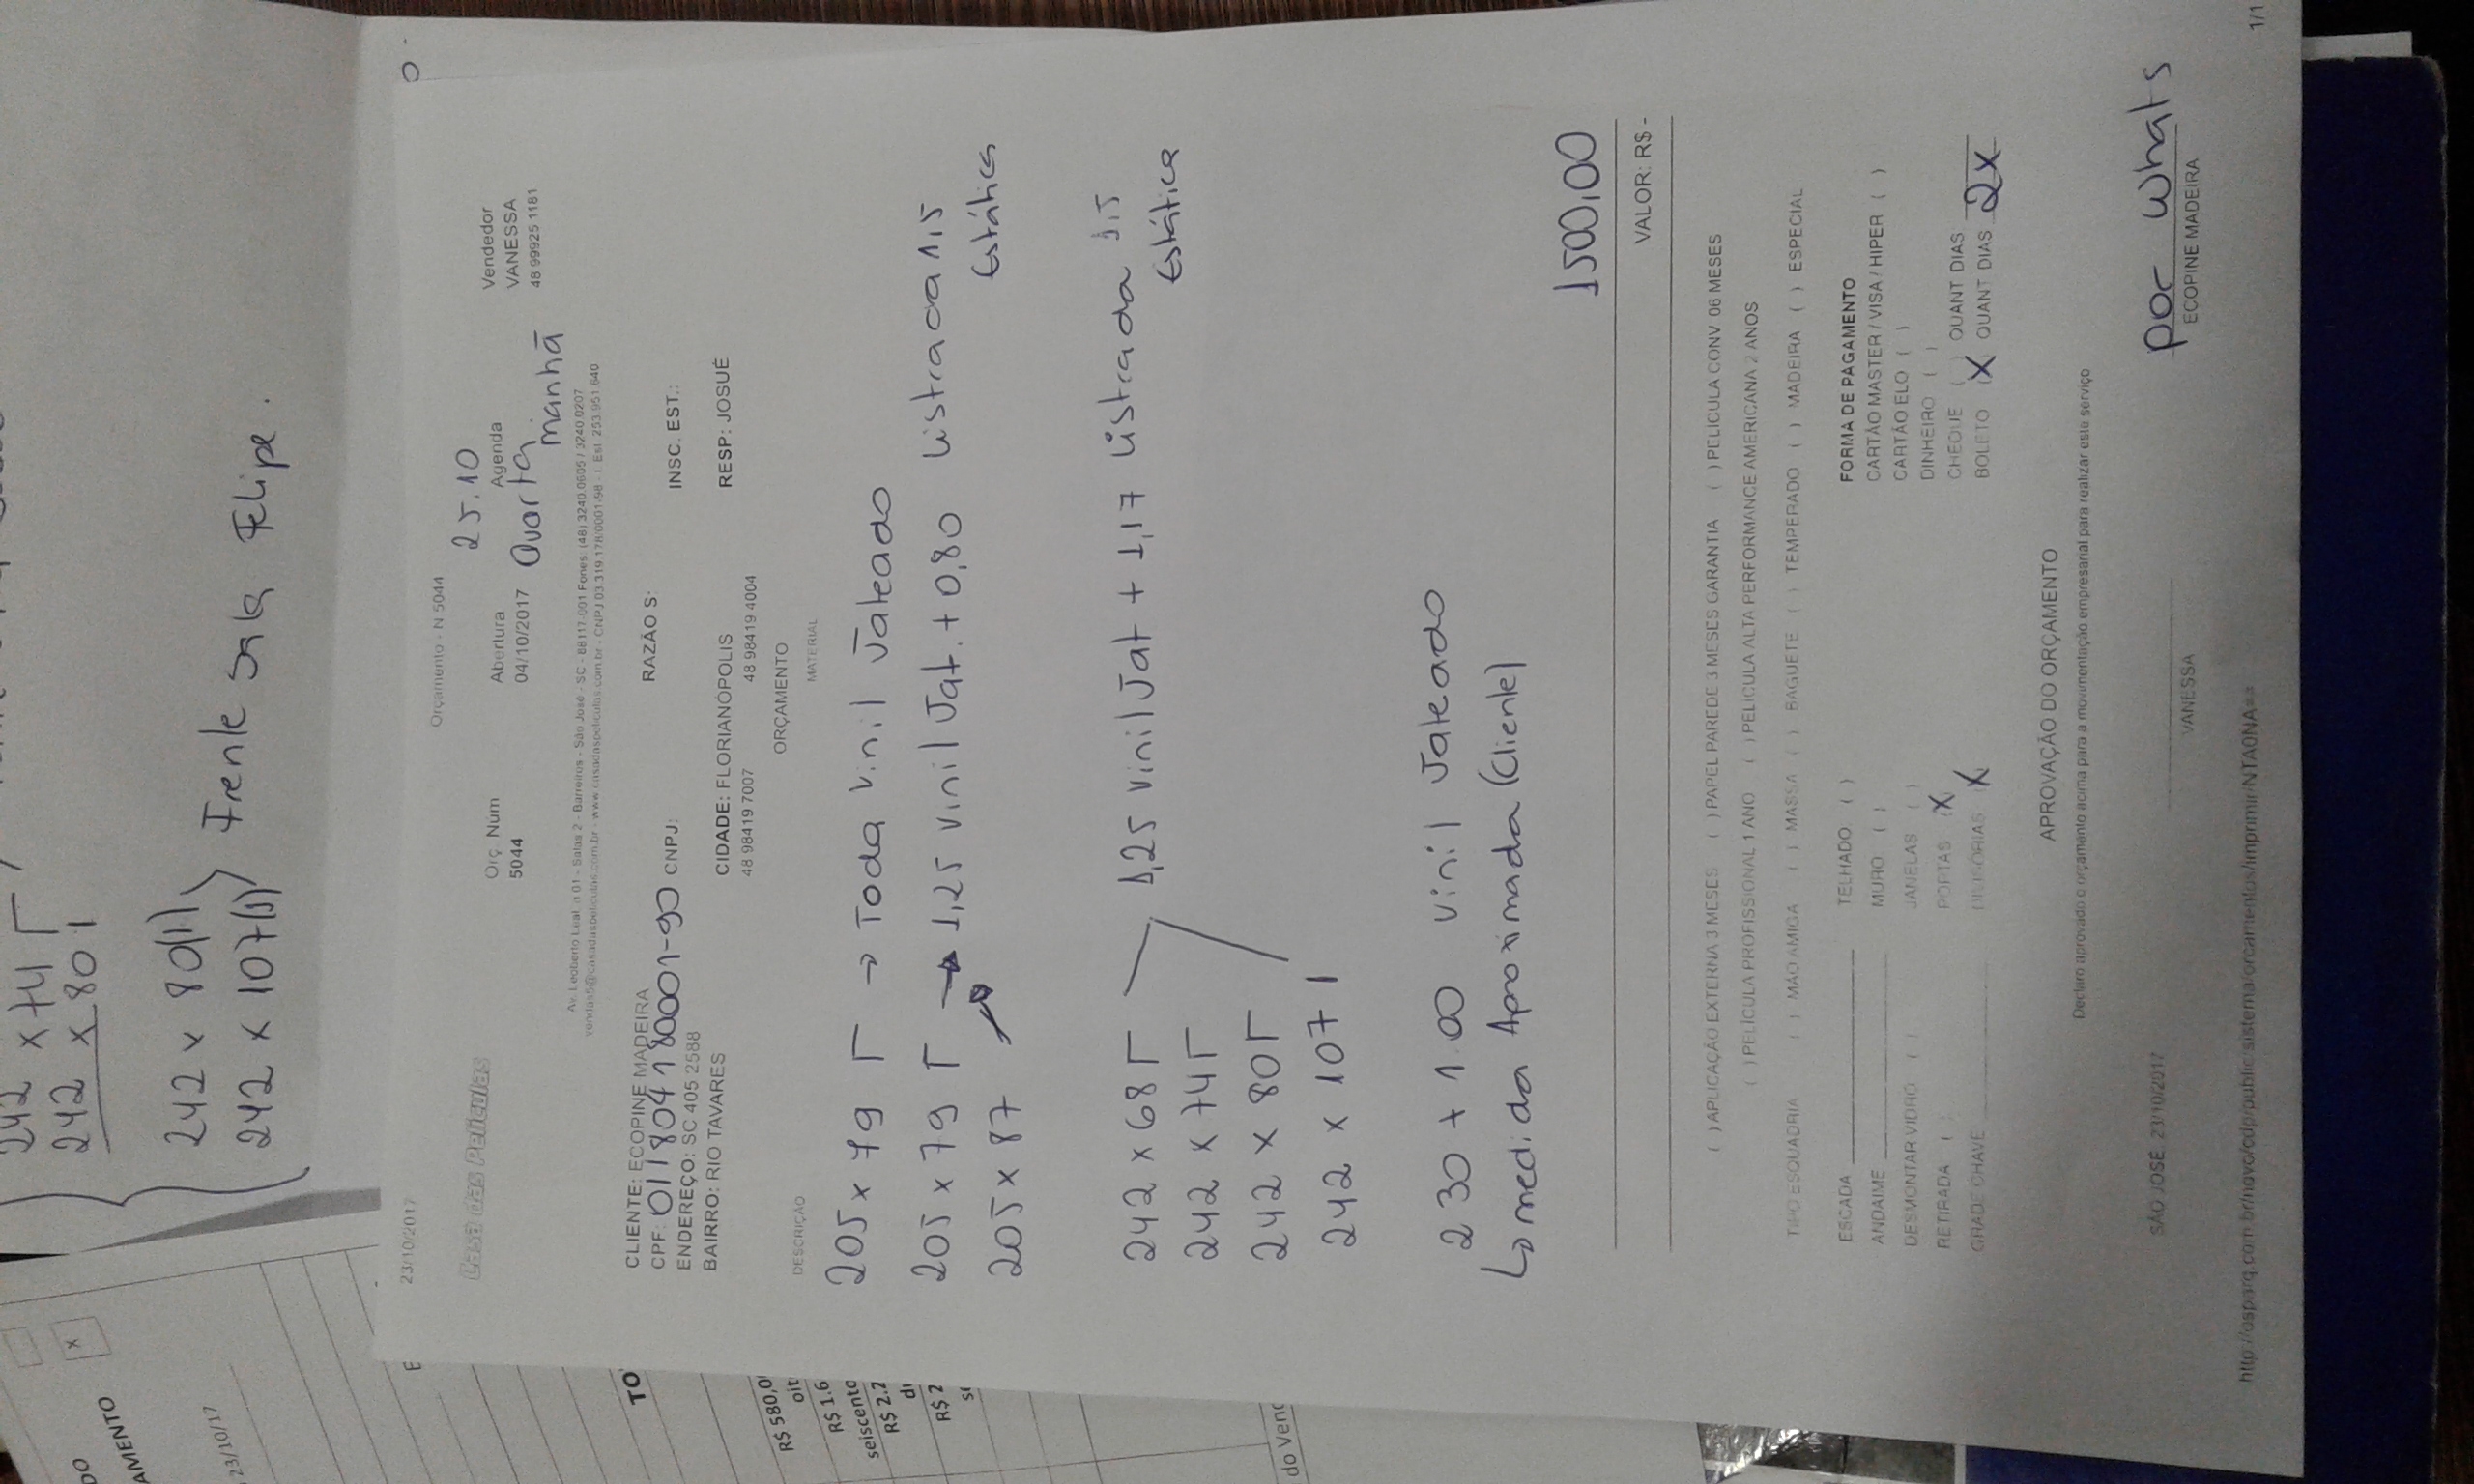 242 x 74 Γ
242 x 80 1
242 x 80(1)
242 x 107(1)
Frente Sala Felipe.
23/10/2017
Orçamento - N 5044
Casa das Películas
25.10
Orç Núm
5044
Abertura
04/10/2017
Agenda
Quarta
manhã
Vendedor
VANESSA
48 99925 1181
Av. Leoberto Leal, n 01 - Salas 2 - Barreiros - São José - SC - 88117-001 Fones: (48) 3240.0605 / 3240.0207
CLIENTE: ECOPINE MADEIRA
RAZÃO S:
INSC. EST.:
CPF: 01180418000 1-90 CNPJ:
ENDEREÇO: SC 405 2588
BAIRRO: RIO TAVARES
CIDADE: FLORIANÓPOLIS
RESP: JOSUÉ
48 98419 7007
48 98419 4004
ORÇAMENTO
DESCRIÇÃO
MATERIAL
205 x 79 Γ → Toda vinil Jateado
205 x 79 Γ → 1,25 vinil Jat. + 0,80 Listrada 1,15
205 x 87
Estática
242 x 68 Γ
1,25 vinil Jat + 1,17 Listrada 1,15
Estática
242 x 74 Γ
242 x 80 Γ
242 x 107 1
230 + 1.00 vinil Jateado
↳ medida Aproximada (Cliente)
1500,00
VALOR: R$ -
( ) APLICAÇÃO EXTERNA 3 MESES ( ) PAPEL PAREDE 3 MESES GARANTIA ( ) PELICULA CONV 06 MESES
( ) PELÍCULA PROFISSIONAL 1 ANO ( ) PELICULA ALTA PERFORMANCE AMERICANA 2 ANOS
TIPO ESQUADRIA ( ) MÃO AMIGA ( ) MASSA ( ) BAGUETE ( ) TEMPERADO ( ) MADEIRA ( ) ESPECIAL
ESCADA
TELHADO ( )
FORMA DE PAGAMENTO
ANDAIME
MURO ( )
CARTÃO MASTER / VISA / HIPER ( )
DESMONTAR VIDRO ( )
JANELAS ( )
CARTÃO ELO ( )
RETIRADA ( )
PORTAS (X)
DINHEIRO ( )
GRADE CHAVE
DIVISÓRIAS X
CHEQUE ( ) QUANT DIAS
BOLETO (X) QUANT DIAS 2x
APROVAÇÃO DO ORÇAMENTO
Declaro aprovado o orçamento acima para a movimentação empresarial para realizar este serviço
SÃO JOSÉ, 23/10/2017
VANESSA
por whats
ECOPINE MADEIRA
1/1
AMENTO
, 23/10/17
X
TO
R$ 580,0
oit
R$ 1.6
seiscento
R$ 2.2
R$ 2
do Venc